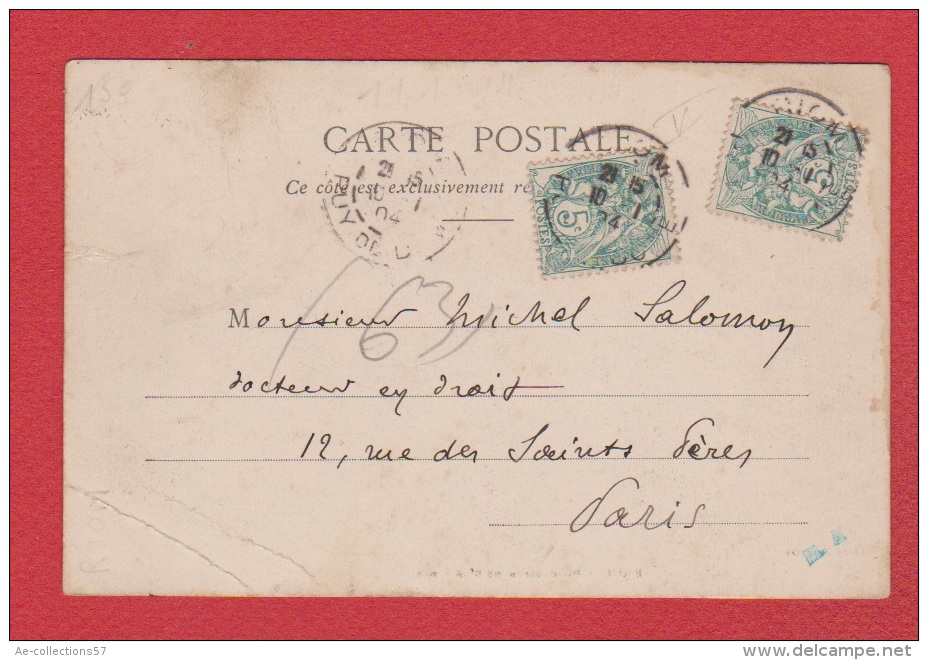 159
CARTE POSTALE
Ce côté est exclusivement ré
21 15
10 1
04
PUY DE D
RIOM
21 15
10 1
04
POSTES
5c
RIOM
21 15
10 1
04
POSTES
5c
(63)
Monsieur Michel Salomon
docteur en droit
12, rue des Saints Pères
Paris
RIOM
M. A
Ae-collections57
www.delcampe.net